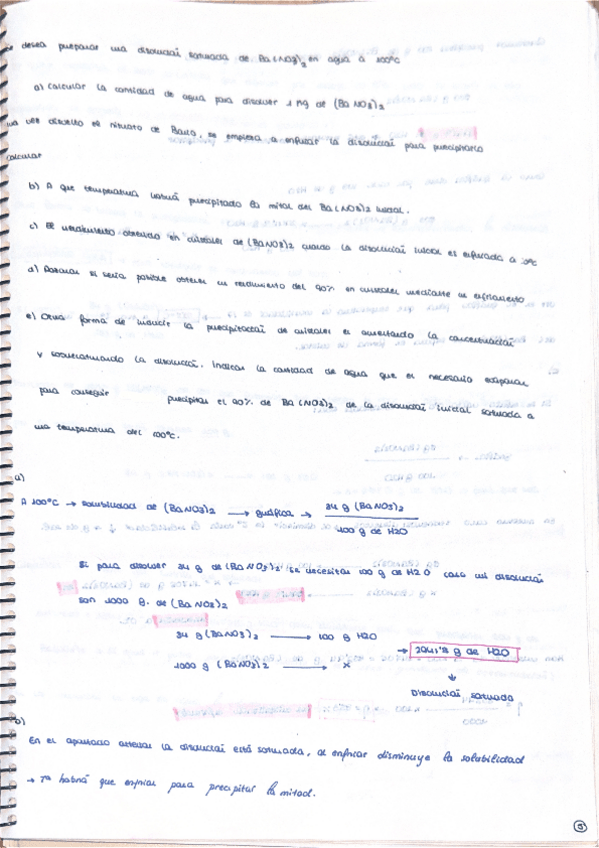 e desea preparar una disolución saturada de Ba(NO3)2 en agua a 100ºC
a) calcular la cantidad de agua para disolver 1 Kg de (Ba NO3)2
na vez disuelto el nitrato de Bario, se empieza a enfriar la disolución para precipitarlo
calcular
b) A que temperatura habrá precipitado la mitad del Ba(NO3)2 inicial.
c) El rendimiento obtenido en cristales de (BaNO3)2 cuando la disolución inicial es enfriada a 0ºC
d) Razonar si sería posible obtener un rendimiento del 90% en cristales mediante un enfriamento
e) Otra forma de inducir la precipitación de cristales es aumentando la concentración
y sobresaturando la disolución. Indicar la cantidad de agua que es necesario evaporar
para conseguir precipitar el 90% de Ba(NO3)2 de la disolución inicial saturada a
una temperatura del 100ºC.
a)
A 100ºC → solubilidad de (BaNO3)2 → gráfica → 34 g (BaNO3)2
100 g de H2O
Si para disolver 34 g de (BaNO3)2 se necesitan 100 g de H2O como mi disolución
son 1000 g. de (Ba NO3)2
34 g (BaNO3)2 → 100 g H2O
→ 2941'2 g de H2O
1000 g (BaNO3)2 → x
↓
Disolución saturada
b)
En el apartado anterior la disolución está saturada, al enfriar disminuye la solubilidad
→ Tª habrá que enfriar para precipitar la mitad.